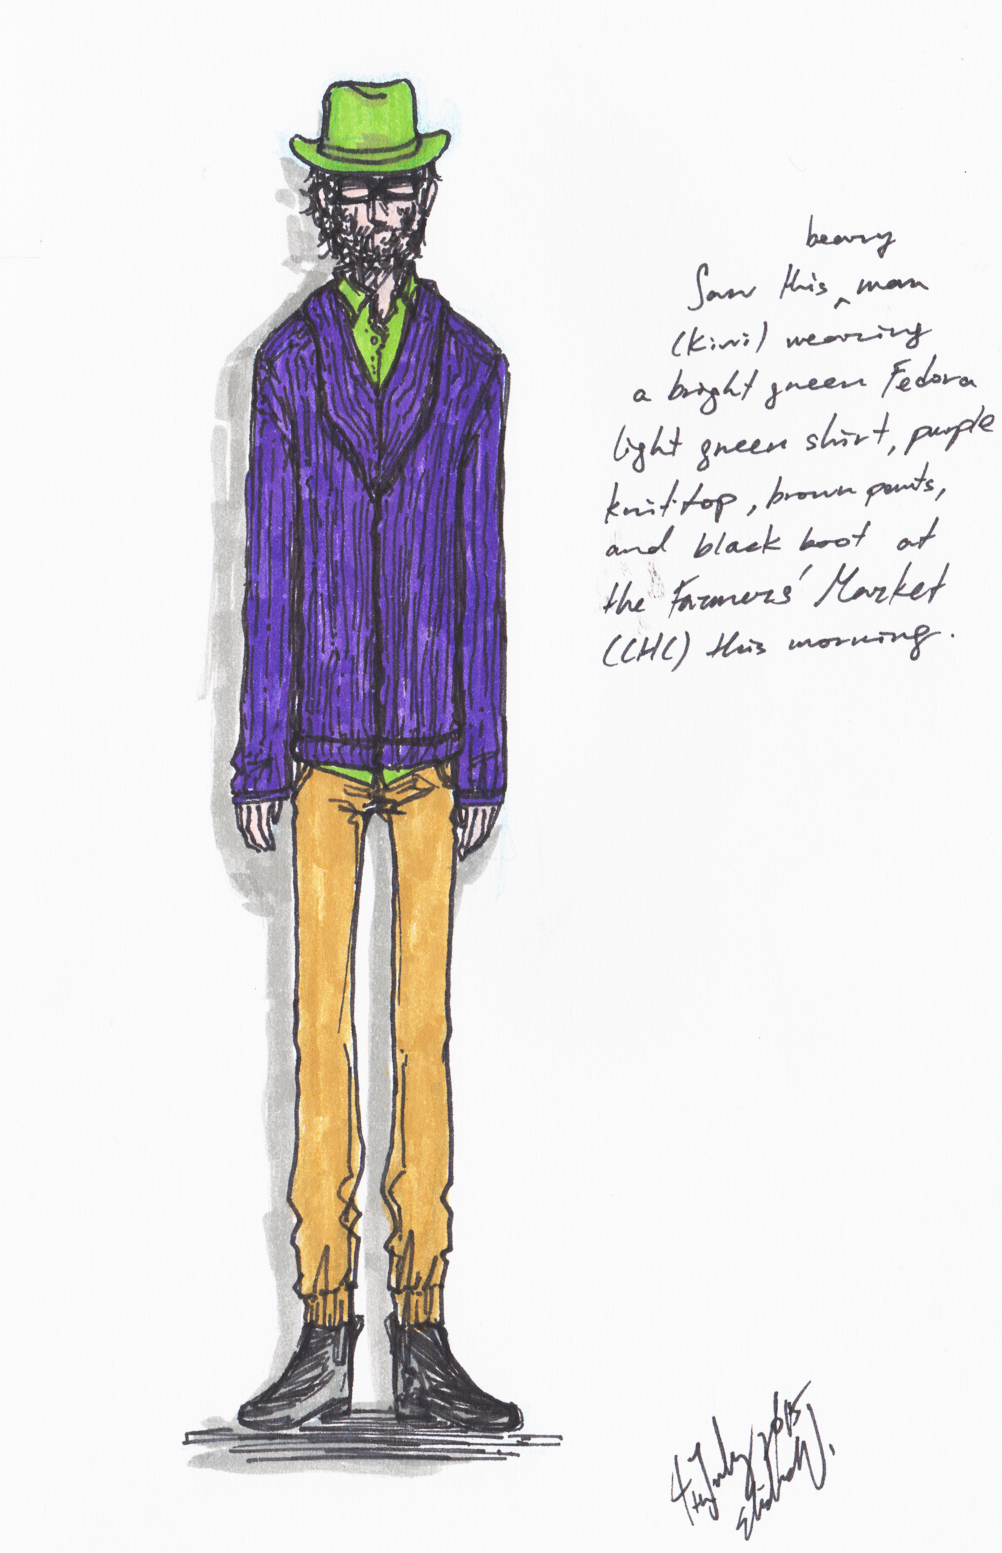 beary
Saw this ^ man
(kiwi) wearing
a bright green Fedora
light green shirt, purple
knit top, brown pants,
and black boot at
the Farmers' Market
(CHC) this morning.
4th July/2015